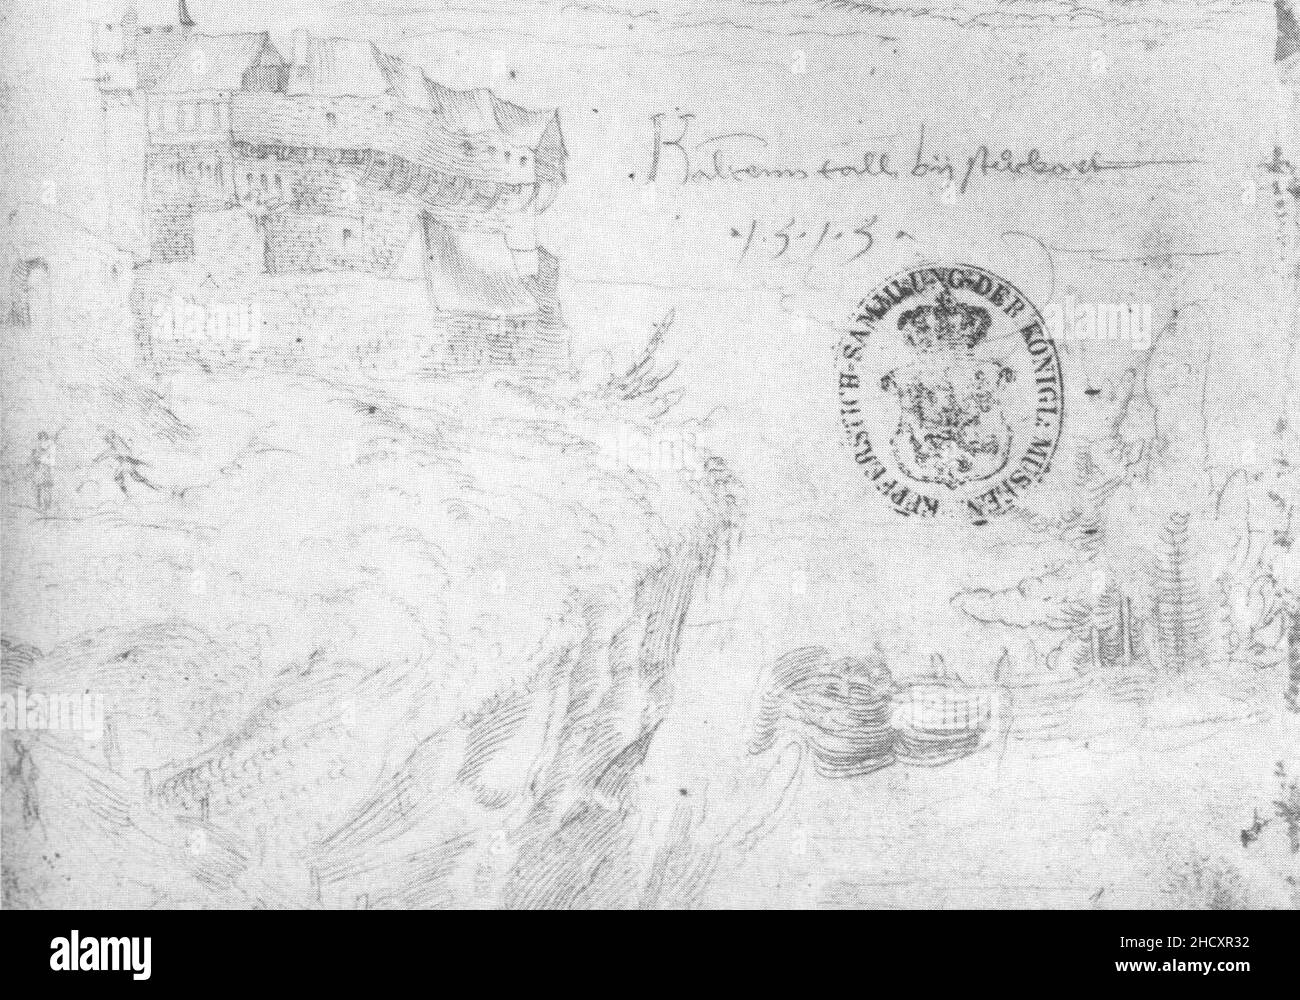 Kaltenntall bij stuckart
1.5.1.5.
KUPFERSTICH-SAMMLUNG DER KÖNIGL: MUSEEN
alamy
alamy
alamy
alamy
alamy
Image ID: 2HCXR32
www.alamy.com